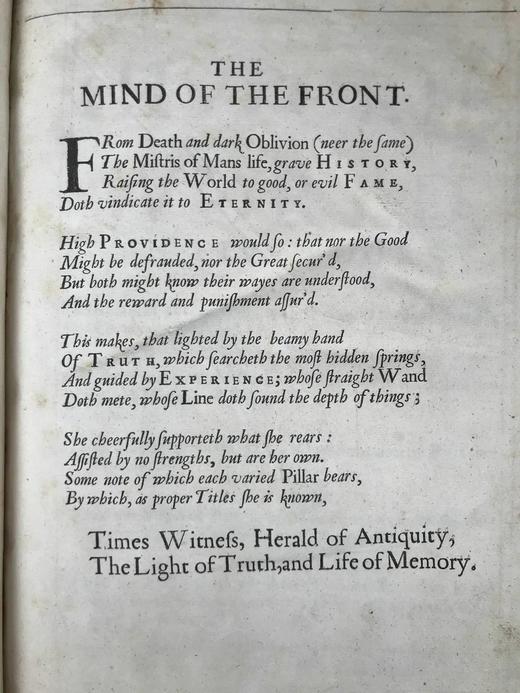 THE
MIND OF THE FRONT.
FRom Death and dark Oblivion (neer the ſame)
The Miſtris of Mans life, grave HISTORY,
Raiſing the World to good, or evil FAME,
Doth vindicate it to ETERNITY.
High PROVIDENCE would ſo: that nor the Good
Might be defrauded, nor the Great ſecur'd,
But both might know their wayes are underſtood,
And the reward and puniſhment aſſur'd.
This makes, that lighted by the beamy hand
Of TRUTH, which ſearcheth the moſt hidden ſprings,
And guided by EXPERIENCE; whoſe ſtraight Wand
Doth mete, whoſe Line doth ſound the depth of things;
She cheerfully ſupporteth what ſhe rears:
Aſſiſted by no ſtrengths, but are her own.
Some note of which each varied Pillar bears,
By which, as proper Titles ſhe is known,
Times Witneſs, Herald of Antiquity,
The Light of Truth, and Life of Memory.